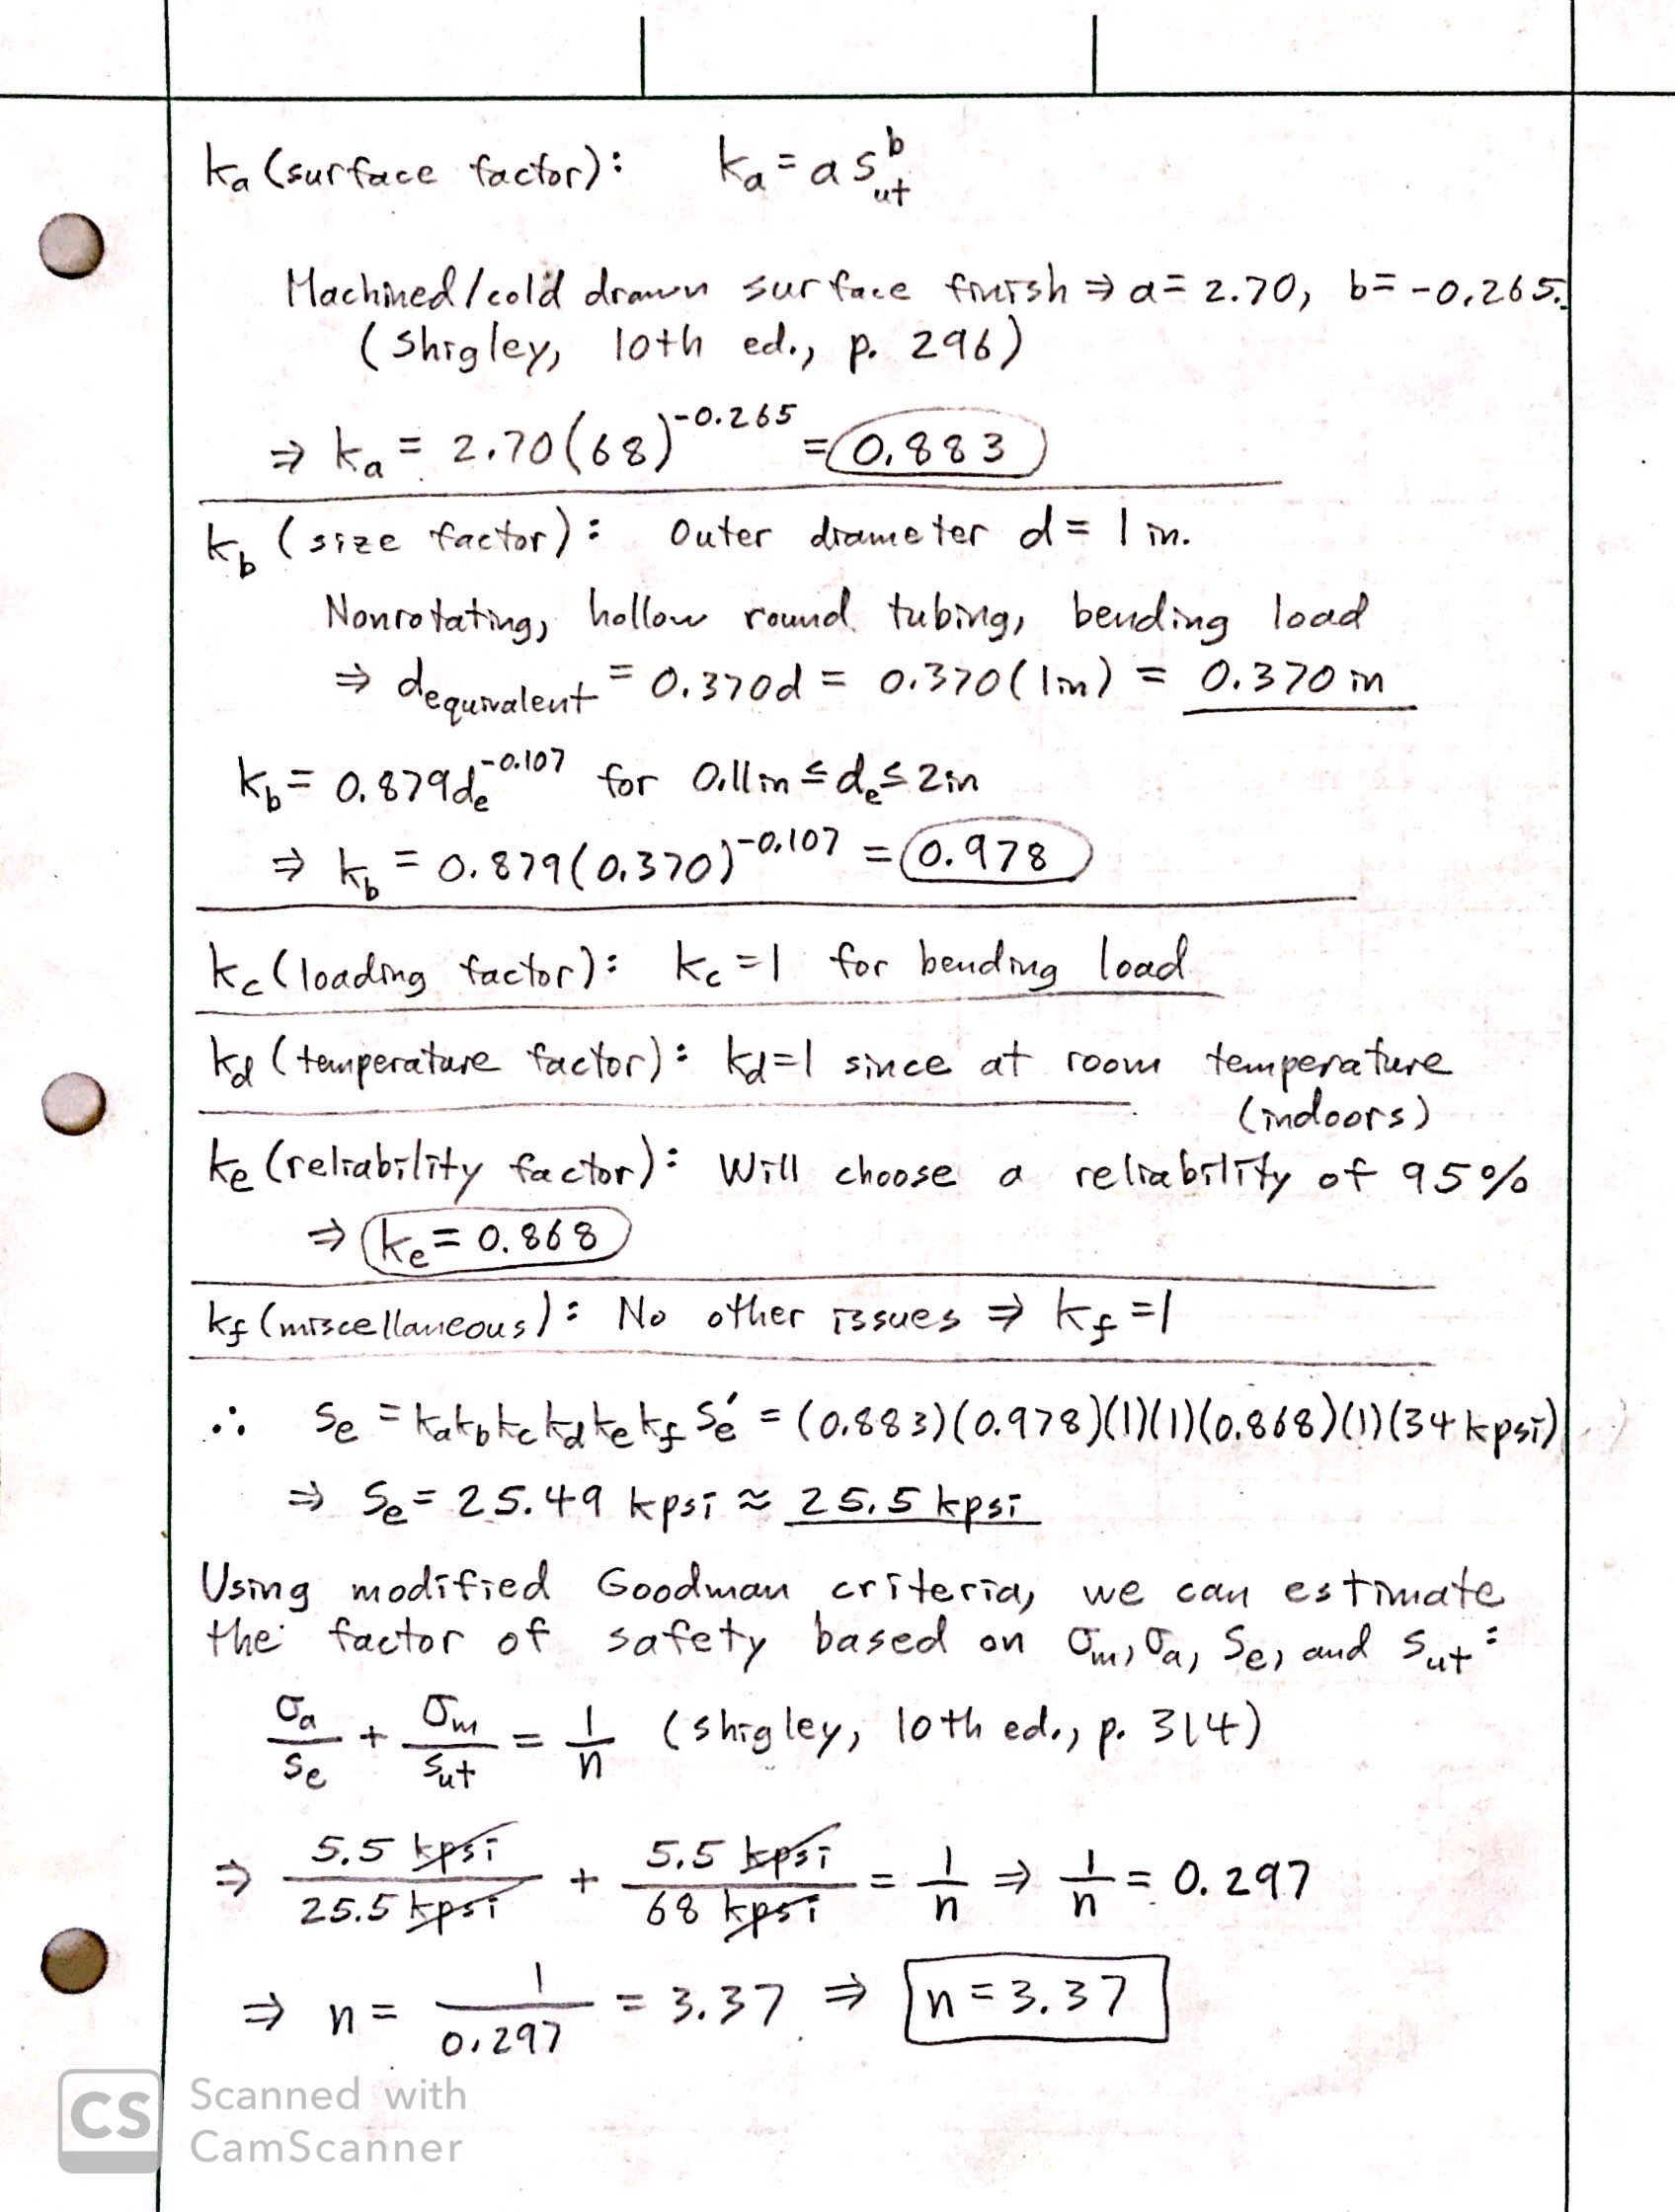 ka (surface factor): ka = a Sut^b
Machined/cold drawn surface finish ⇒ a = 2.70, b = -0.265.
(Shigley, 10th ed., p. 296)
⇒ ka = 2.70(68)^-0.265 = 0.883
kb (size factor): Outer diameter d = 1 in.
Nonrotating, hollow round tubing, bending load
⇒ dequivalent = 0.370d = 0.370(1in) = 0.370 in
kb = 0.879de^-0.107 for 0.11in ≤ de ≤ 2in
⇒ kb = 0.879(0.370)^-0.107 = 0.978
kc (loading factor): kc = 1 for bending load
kd (temperature factor): kd = 1 since at room temperature
(indoors)
ke (reliability factor): Will choose a reliability of 95%
⇒ ke = 0.868
kf (miscellaneous): No other issues ⇒ kf = 1
∴ Se = ka kb kc kd ke kf Se' = (0.883)(0.978)(1)(1)(0.868)(1)(34 kpsi)
⇒ Se = 25.49 kpsi ≈ 25.5 kpsi
Using modified Goodman criteria, we can estimate
the factor of safety based on σm, σa, Se, and Sut:
σa/Se + σm/Sut = 1/n (Shigley, 10th ed., p. 314)
⇒ 5.5 kpsi/25.5 kpsi + 5.5 kpsi/68 kpsi = 1/n ⇒ 1/n = 0.297
⇒ n = 1/0.297 = 3.37 ⇒ n = 3.37
CS Scanned with
CamScanner